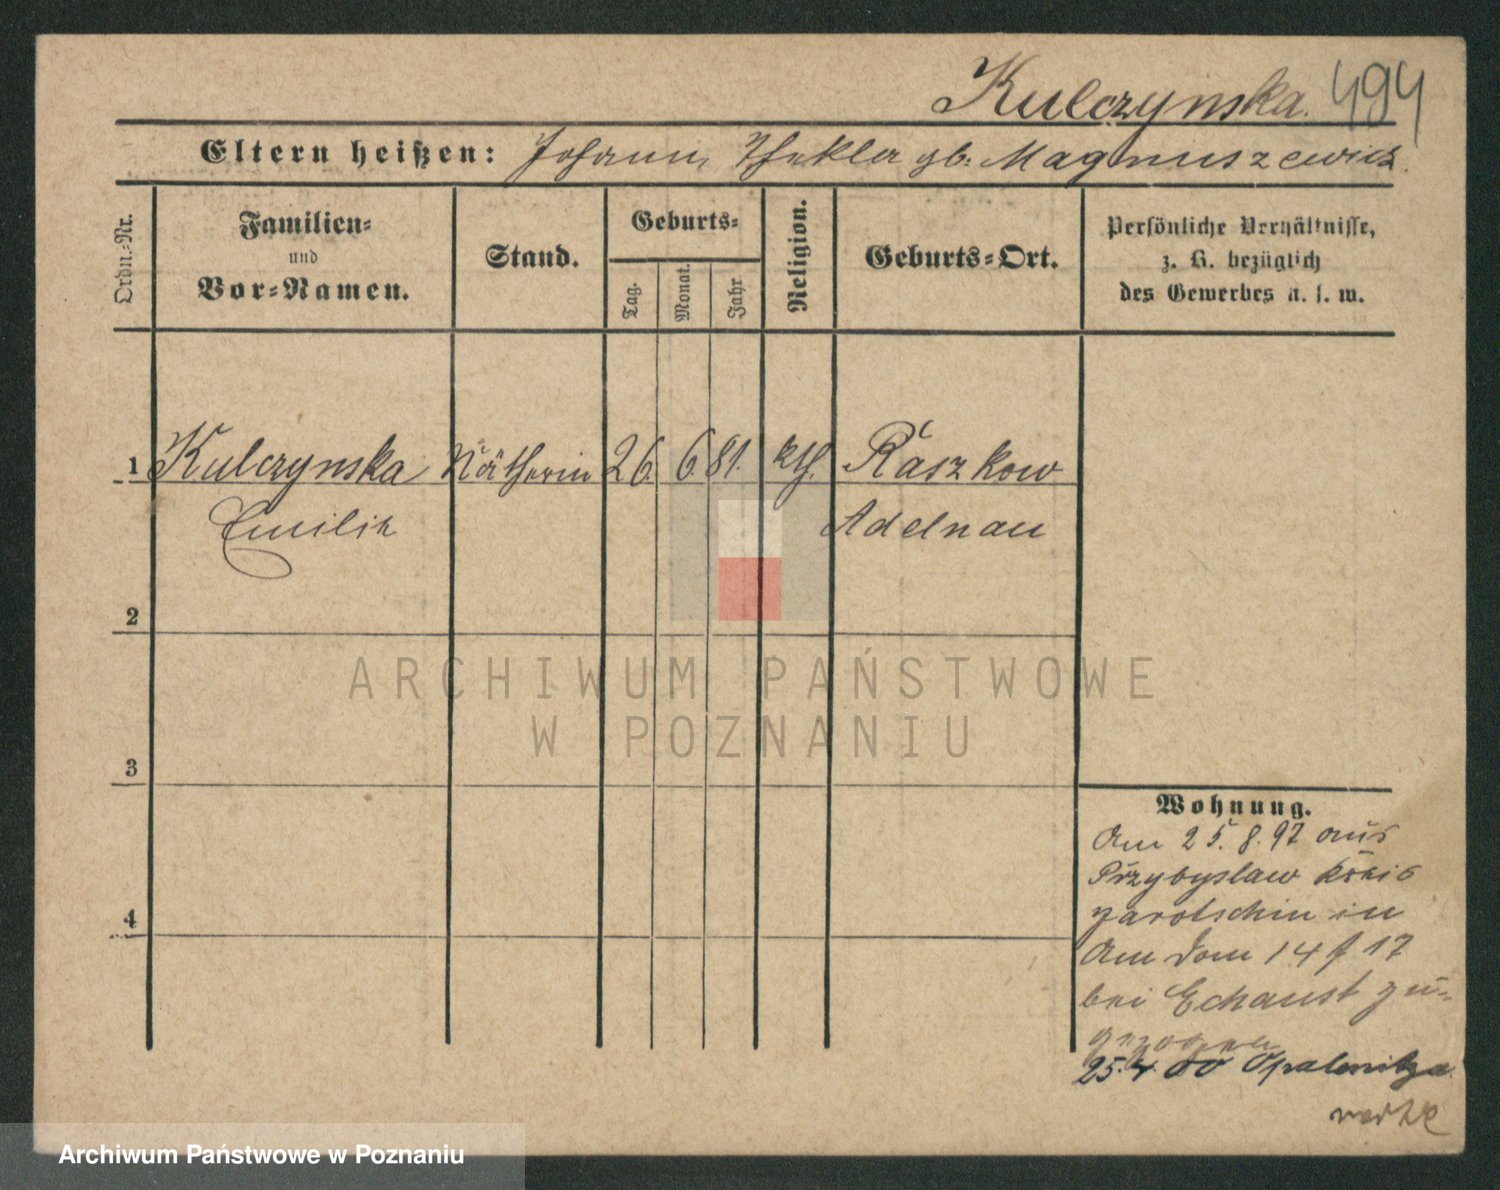 Kulczynska. 494
Eltern heißen: Johann, Thekla gb. Magnuszewicz.
Ordn.-Nr.
Familien-
und
Vor-Namen.
Stand.
Geburts-
Tag.
Monat.
Jahr
Religion.
Geburts-Ort.
Persönliche Verhältnisse,
z. B. bezüglich
des Gewerbes u. s. w.
1 Kulczynska Nätherin 26. 6. 81. kth. Raszkow
Emilie Adelnau
2
3
4
Wohnung.
Am 25. 8. 97 aus
Przybyslaw Kreis
Jarotschin in
Am Dom 14 17
bei Echaust zu-
gezogen
25. 4. 00 Opalenitza
ARCHIWUM PAŃSTWOWE
W POZNANIU
Archiwum Państwowe w Poznaniu